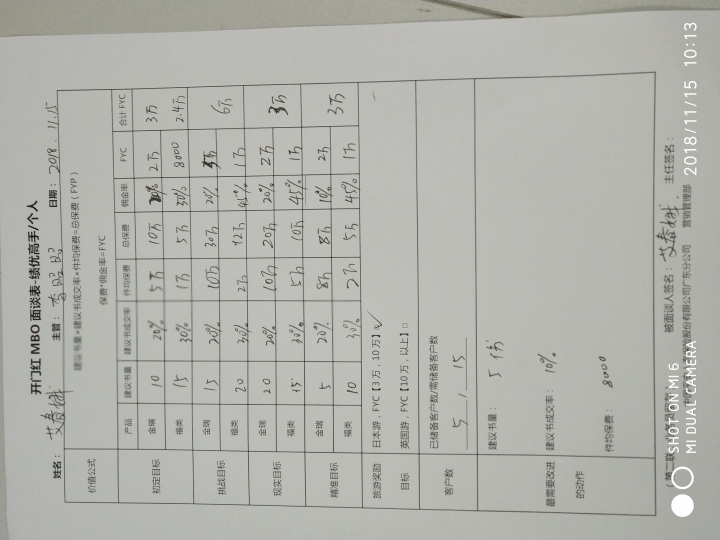 开门红 MBO 面谈表-绩优高手/个人
姓名： 主管： 日期：2018.11.15
价值公式 建议书量*建议书成交率*件均保费=总保费（FYP）
保费*佣金率=FYC
产品 建议书量 建议书成交率 件均保费 总保费 佣金率 FYC 合计 FYC
初定目标 金瑞 10 20% 5万 10万 20% 2万 3万
福类 15 30% 1万 5万 30% 8000 2.4万
挑战目标 金瑞 15 20% 10万 30万 20% 6万
福类 20 30% 2万 12万 45% 1万
现实目标 金瑞 20 20% 10万 20万 20% 2万 3万
福类 15 30% 5万 10万 45% 1万
精准目标 金瑞 5 20% 8万 8万 10% 2万 3万
福类 10 30% 2万 5万 45% 1万
旅游奖励 日本游，FYC【3万，10万】☑
目标 英国游，FYC【10万，以上】□
客户数 已储备客户数/需储备客户数
5 / 15
最需要改进 建议书量： 5份
的动作 建议书成交率： 10%
件均保费： 8000
被面谈人签名： 主任签名：
保险股份有限公司广东分公司 营销管理部
SHOT ON MI 6
MI DUAL CAMERA
2018/11/15 10:13